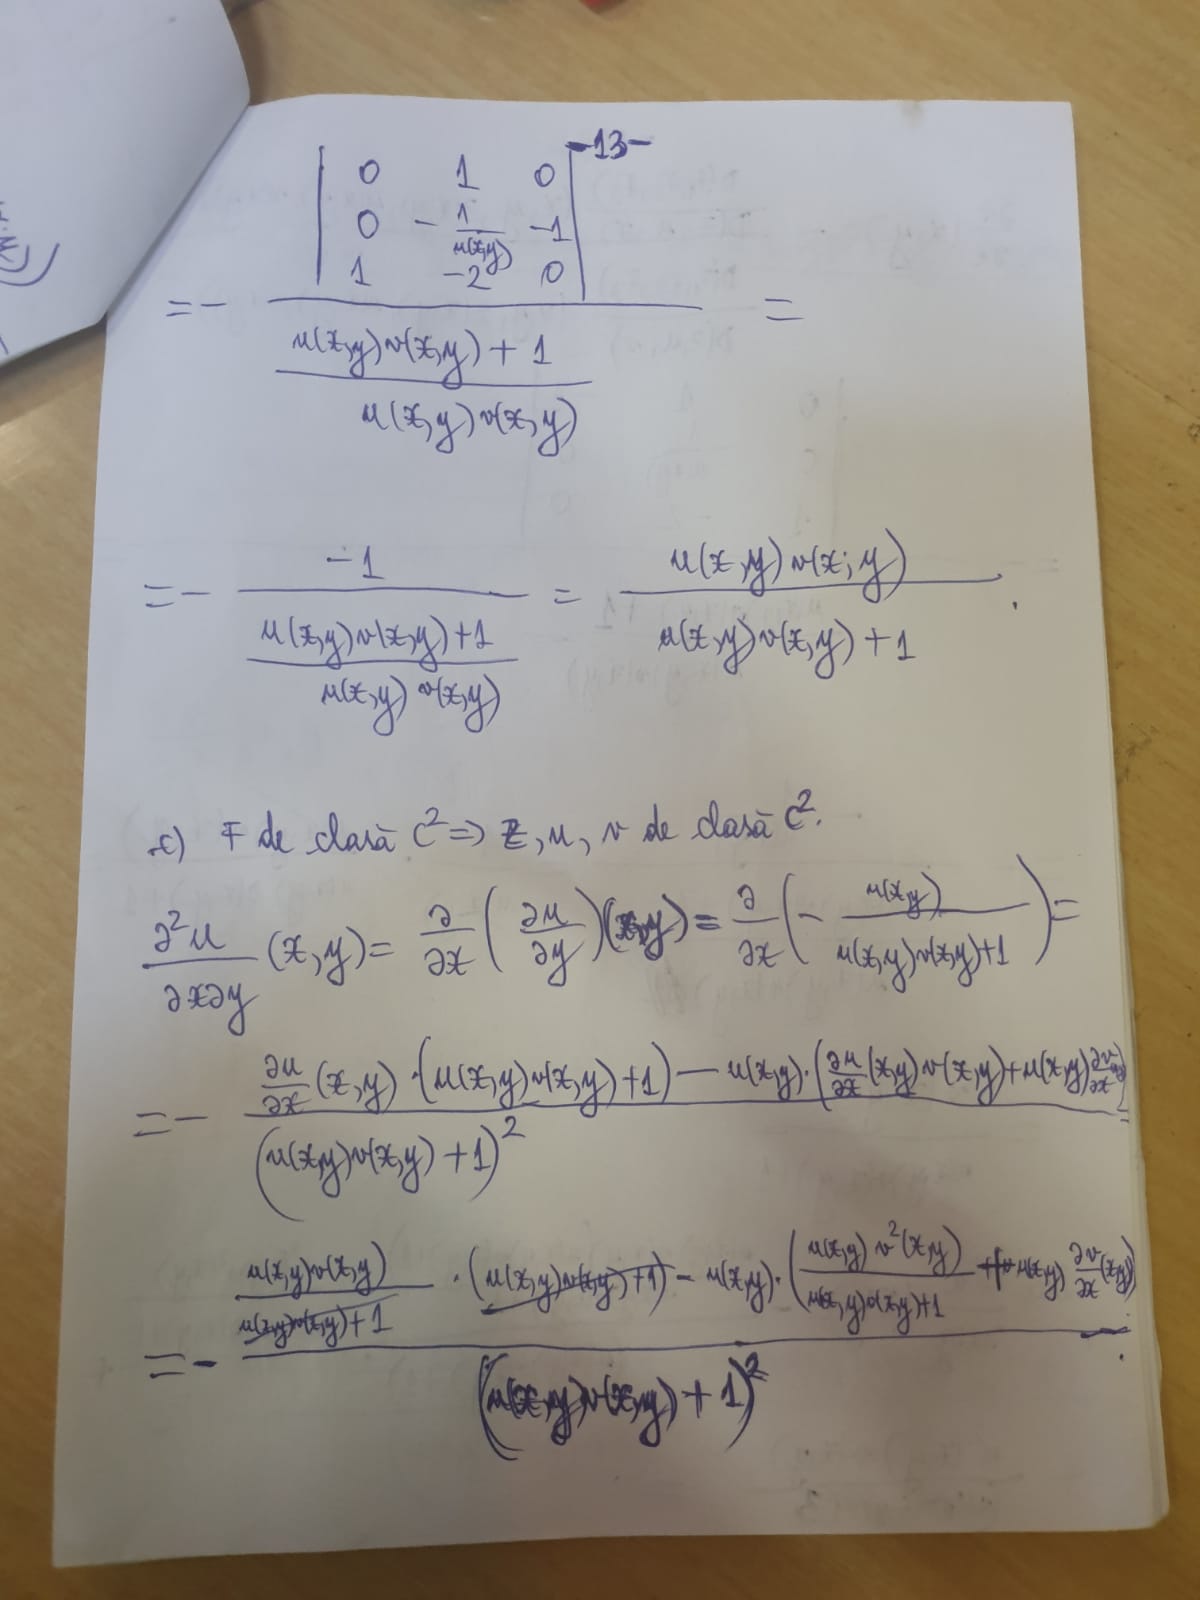 -13-
| 0 1 0 |
| 0 -1/u(x,y) -1 |
| 1 -2 0 |
= - ________ =
u(x,y)v(x,y) + 1
u(x,y)v(x,y)
= - -1 / ((u(x,y)v(x,y)+1) / (u(x,y) v(x,y))) = u(x,y)v(x;y) / (u(x,y)v(x,y)+1) .
c) F de clasă C² => z, u, v de clasă C².
∂²u/∂x∂y (x,y) = ∂/∂x (∂u/∂y)(x,y) = ∂/∂x (- u(x,y) / (u(x,y)v(x,y)+1)) =
= - (∂u/∂x (x,y) · (u(x,y)v(x,y)+1) - u(x,y) · (∂u/∂x (x,y) v(x,y) + u(x,y) ∂v/∂x (x,y))) / (u(x,y)v(x,y)+1)² =
= - (u(x,y)v(x,y) / (u(x,y)v(x,y)+1) · (u(x,y)v(x,y)+1) - u(x,y) · (u(x,y) v²(x,y) / (u(x,y)v(x,y)+1) + u(x,y) ∂v/∂x (x,y))) / (u(x,y)v(x,y)+1)² .